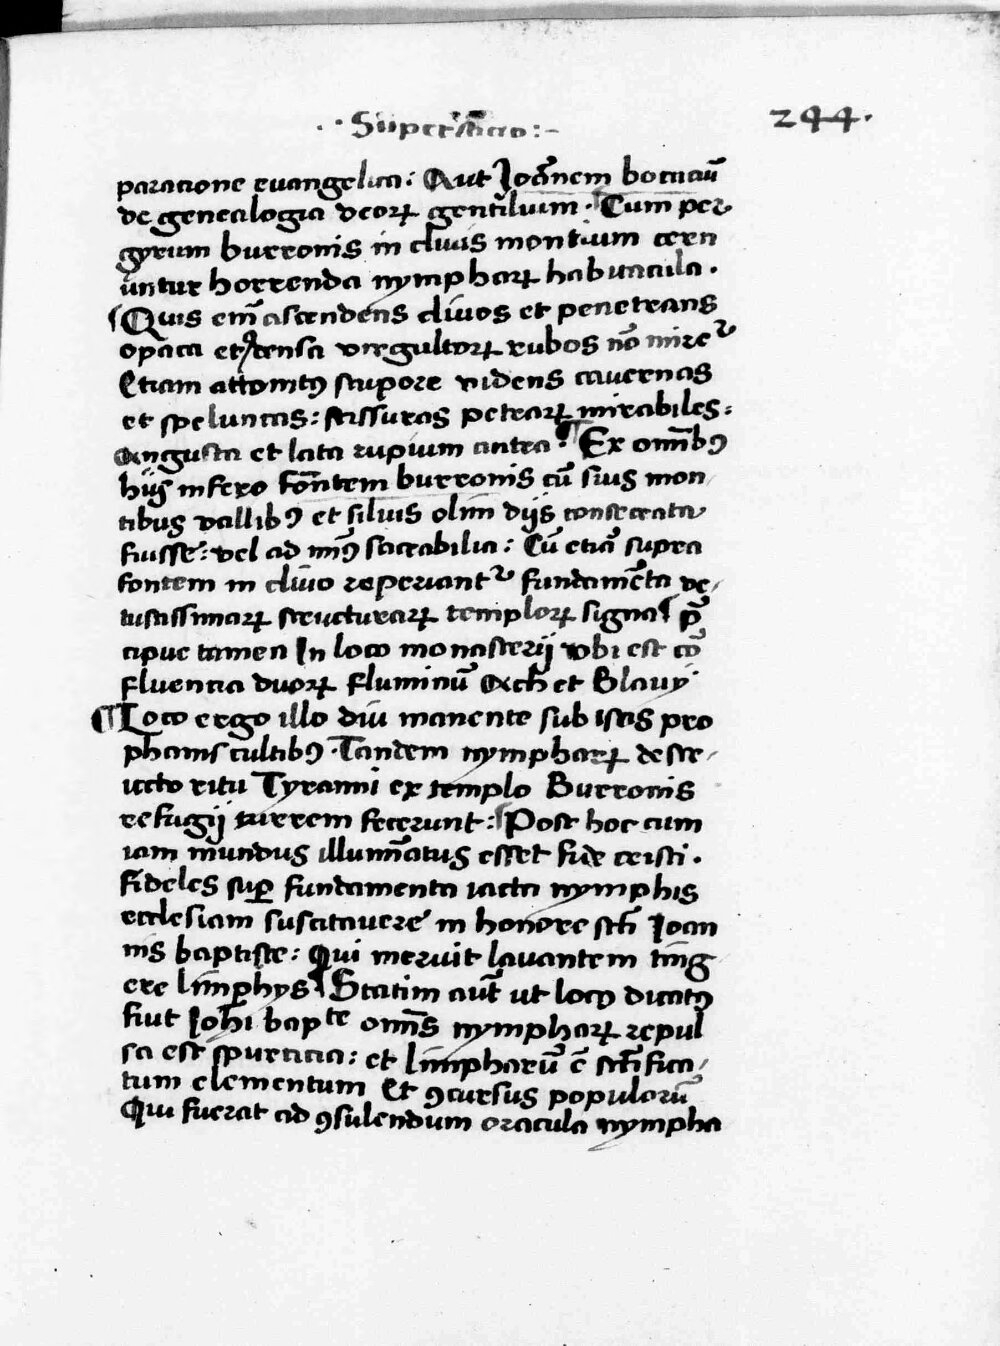 · · Supersticio :-
244 ·
paracione evangelica : Aut Joānem bocaciū
de genealogia deoꝝ gentilium · Cum per
gyrum burronis in clivis montium cern
untur horrenda nympharꝝ habitacula .
Quis em̄ ascendens clivos et penetrans
opaca et ꝯdensa virgultorꝝ rubos nō mireᷣ
Etiam attonitꝰ stupore videns cavernas
et speluncas : scissuras petrarꝝ mirabiles :
Angusta et lata rupium antra . ¶ Ex omībꝰ
hijs infero fōntem burronis cū suis mon
tibus vallibꝰ et silvis olim dijs consecrata
fuisse : vel ad minꝰ sacrabilia : Cū etiā supra
fontem in clivo reperiantᷣ fundamēta ve-
tustissimarꝝ structurarꝝ templorꝝ signa p̄
cipue tamen In loco monasterij vbi est cō
fluencia duorꝝ fluminū Ach et Blavÿ
¶ Loco ergo illo diu manente sub istis pro
phanis cultibꝰ · Tandem nympharꝝ destr-
ucto ritu Tyranni ex templo Burronis
refugij turrem fecerunt : Post hoc cum
iam mundus illumīatus esset fide cristi .
fideles suꝑ fundamenta iacta nymphis
ecclesiam suscitavere in honore sc̄ti Joan
nis baptiste : Qui meruit lavantem ting
ere limphys Statim aut̄ ut locꝰ dicatꝰ
fuit Joh̄i bapte om̄is nympharꝝ repul
sa est spurcicia : et limpharū ē sc̄tifica-
tum elementum Et ꝯcursus populorū
Qui fuerat ad ꝯsulendum oracula nympha